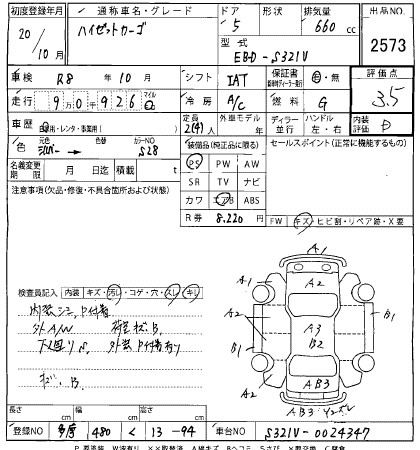 初度登録年月 通称車名・グレード ドア 形状 排気量 出品NO.
20/10月 ハイゼットカーゴ 5 660 cc 2573
型式 EBD-S321V
車検 R8年10月 シフト IAT 保証書 有・無 評価点 3.5
走行 9万0千926 マイル 冷房 A/C 燃料 G
車歴 自家用・レンタ・事業用( ) 定員 2(4)人 外車モデル 年 ディーラー 並行 ハンドル 左・右 内装評価 D
色 元色 シルバー 色替 カラーNO S28 装備品(純正品に限る) セールスポイント(正常に機能するもの)
PS PW AW
名義変更期限 月 日迄 積載 t SR TV ナビ
注意事項(欠品・修復・不具合箇所および状態) カワ エアB ABS
R券 8,220 FW キズ・ヒビ割・リペア跡・X要
検査員記入 内装 キズ・汚レ・コゲ・穴・スレ・キレ
A1 A2 A1
内装シミ
外AW B.
A2 A3 B2 B1
下廻りS. 外装
B1
B.
A2 AB3 A2
AB3
長さ cm 幅 cm 高さ cm
登録NO 多摩 480 く 13-94 車台NO S321V-0024347